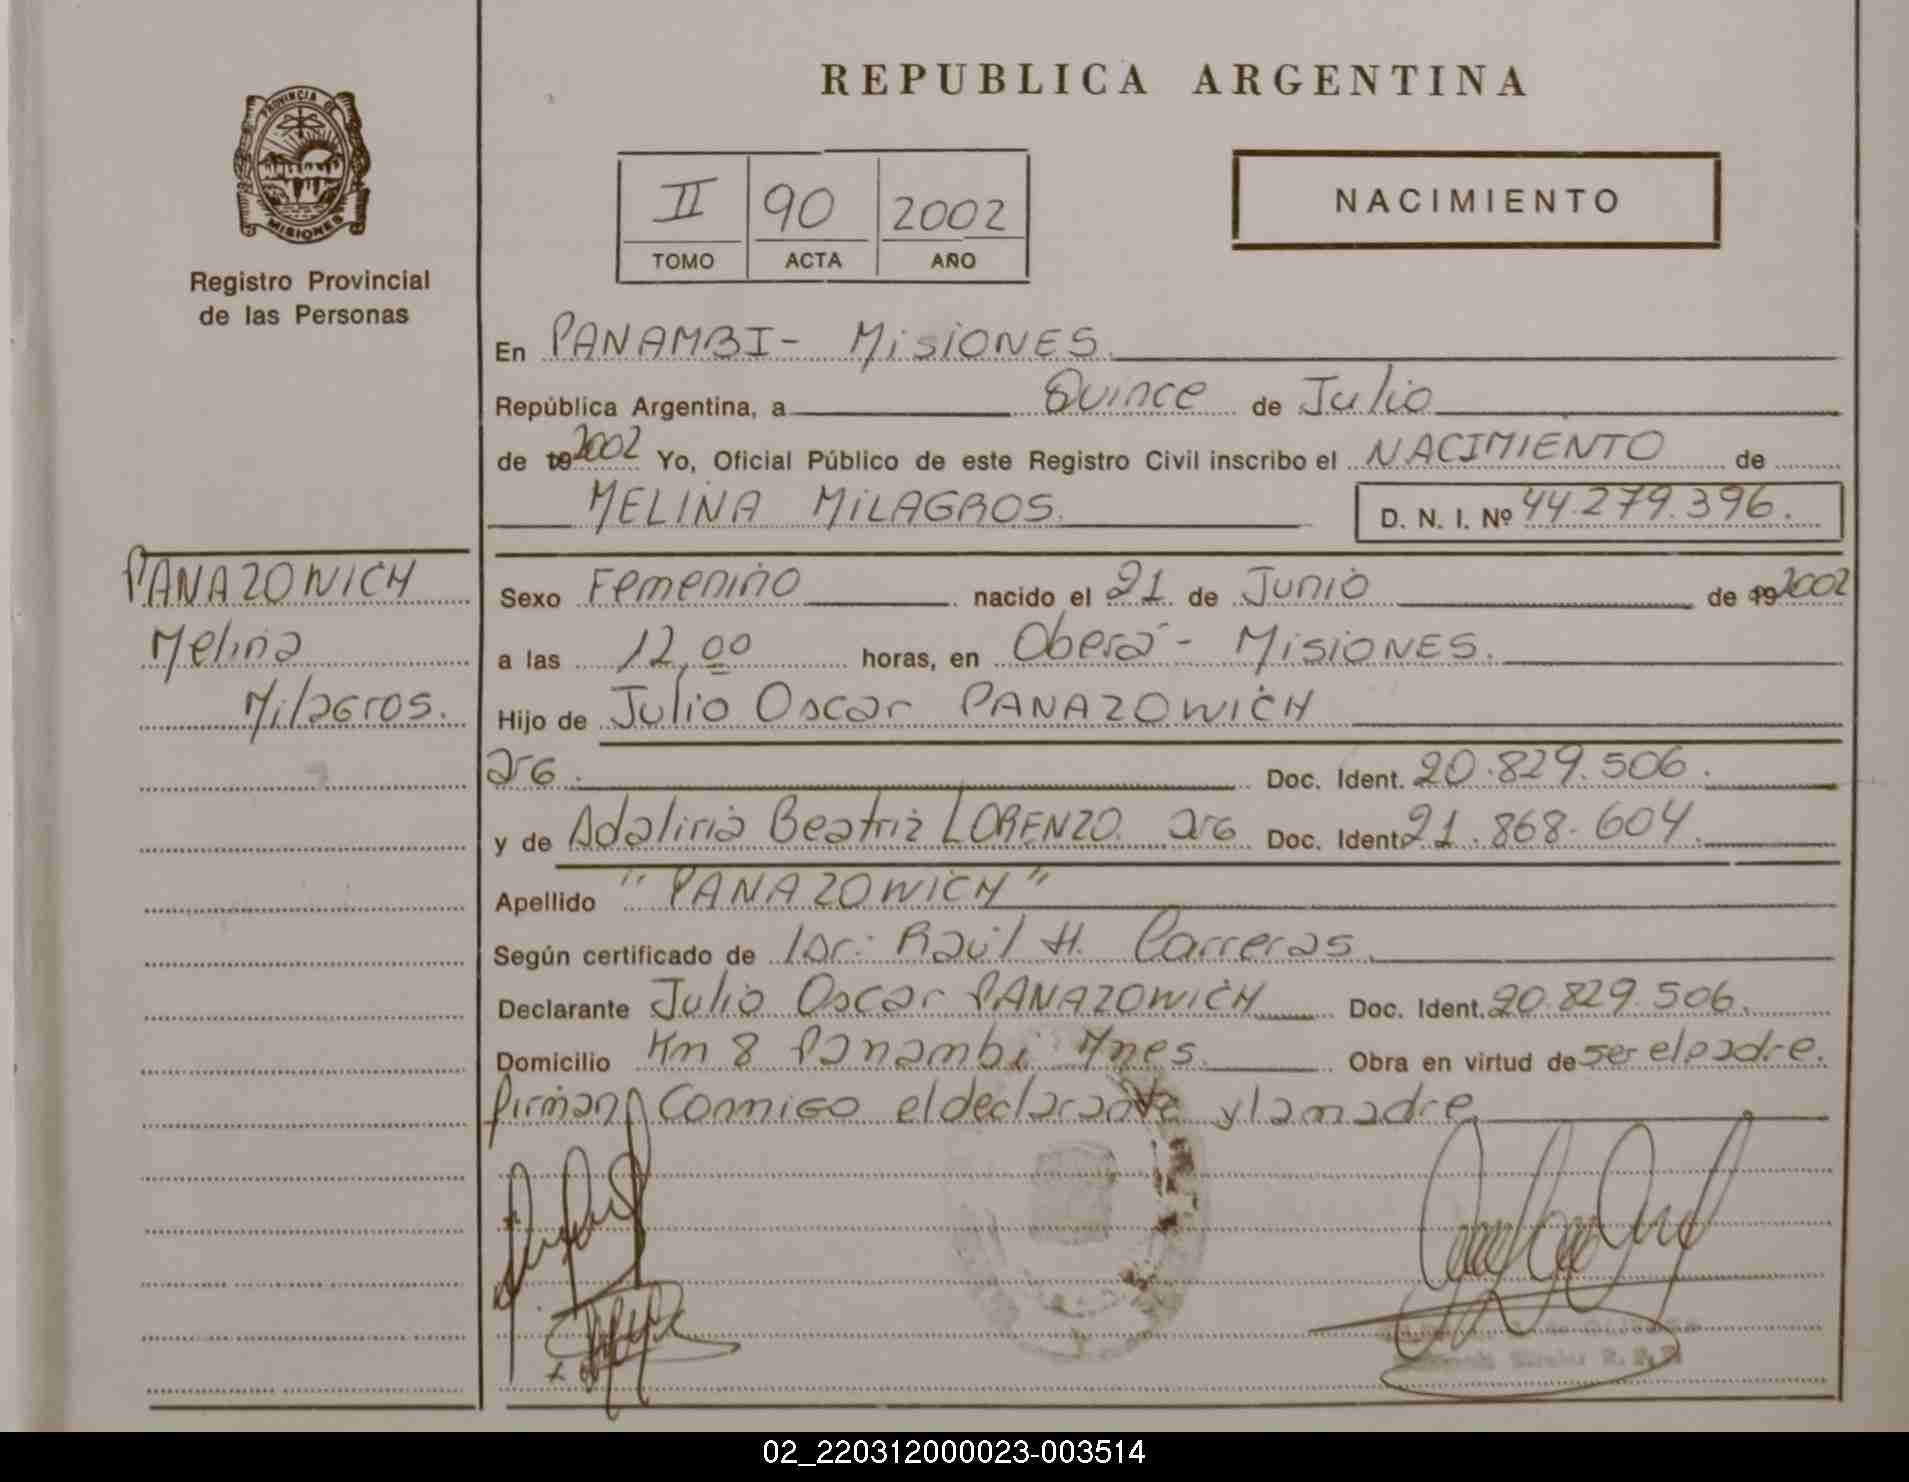 REPUBLICA ARGENTINA
PROVINCIA DE
MISIONES
Registro Provincial
de las Personas
II 90 2002
TOMO ACTA AÑO
NACIMIENTO
En PANAMBI- MisiONES
República Argentina, a Quince de Julio
de 192002 Yo, Oficial Público de este Registro Civil inscribo el NACIMIENTO de
MELINA MILAGROS. D. N. I. Nº 44.279.396.
PANAZOWICH
Melina
Milagros.
Sexo Femenino nacido el 21 de Junio de 192002
a las 12,00 horas, en Oberá - MisiONES.
Hijo de Julio Oscar PANAZOWICH
arg. Doc. Ident. 20.829.506.
y de Adalinia Beatriz LORENZO. arg Doc. Ident. 21.868.604.
Apellido "PANAZOWICH"
Según certificado de Dr: Raúl H. Carreras
Declarante Julio Oscar PANAZOWICH Doc. Ident. 20.829.506.
Domicilio Km 8 Panambi Mnes. Obra en virtud de ser el padre.
firman Conmigo el declarante y la madre
R. P. P.
02_220312000023-003514